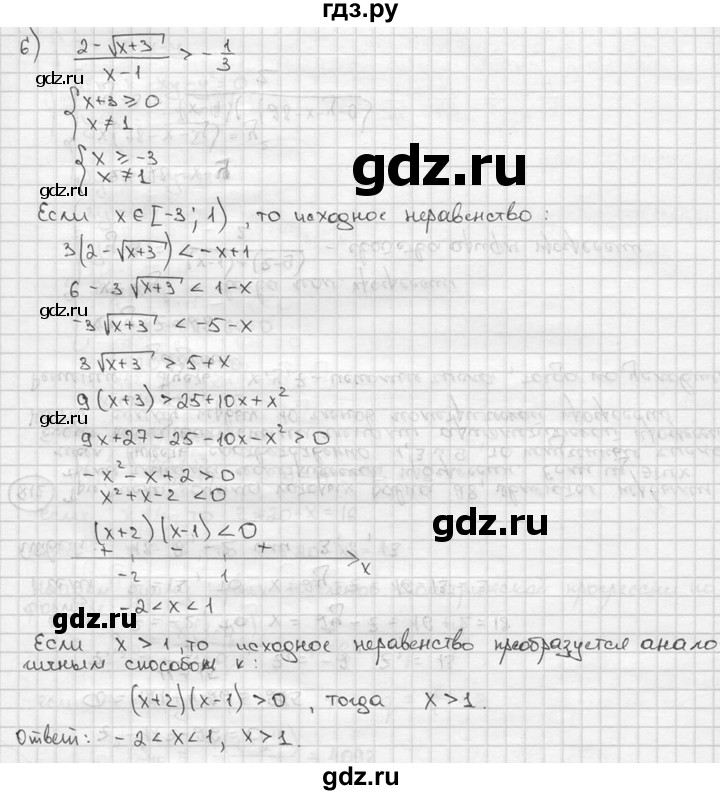 гдз.ру
б) (2 - √(x+3))/(x - 1) > - 1/3
{ x+3 ≥ 0
x ≠ 1
{ x ≥ -3
x ≠ 1
gdz.ru
gdz.ru
gdz.ru
Если x ∈ [-3; 1), то исходное неравенство:
3(2 - √(x+3)) < -x+1
6 - 3√(x+3) < 1-x
gdz.ru
-3√(x+3) < -5-x
3√(x+3) > 5+x
9(x+3) > 25+10x+x²
gdz.ru
9x+27-25-10x-x² > 0
-x²-x+2 > 0
x²+x-2 < 0
gdz.ru
gdz.ru
(x+2)(x-1) < 0
+ - + x
-2 1
-2 < x < 1
gdz.ru
Если x > 1, то исходное неравенство преобразуется анало
гичным способом к:
gdz.ru
(x+2)(x-1) > 0, тогда x > 1.
Ответ: -2 < x < 1, x > 1.
gdz.ru